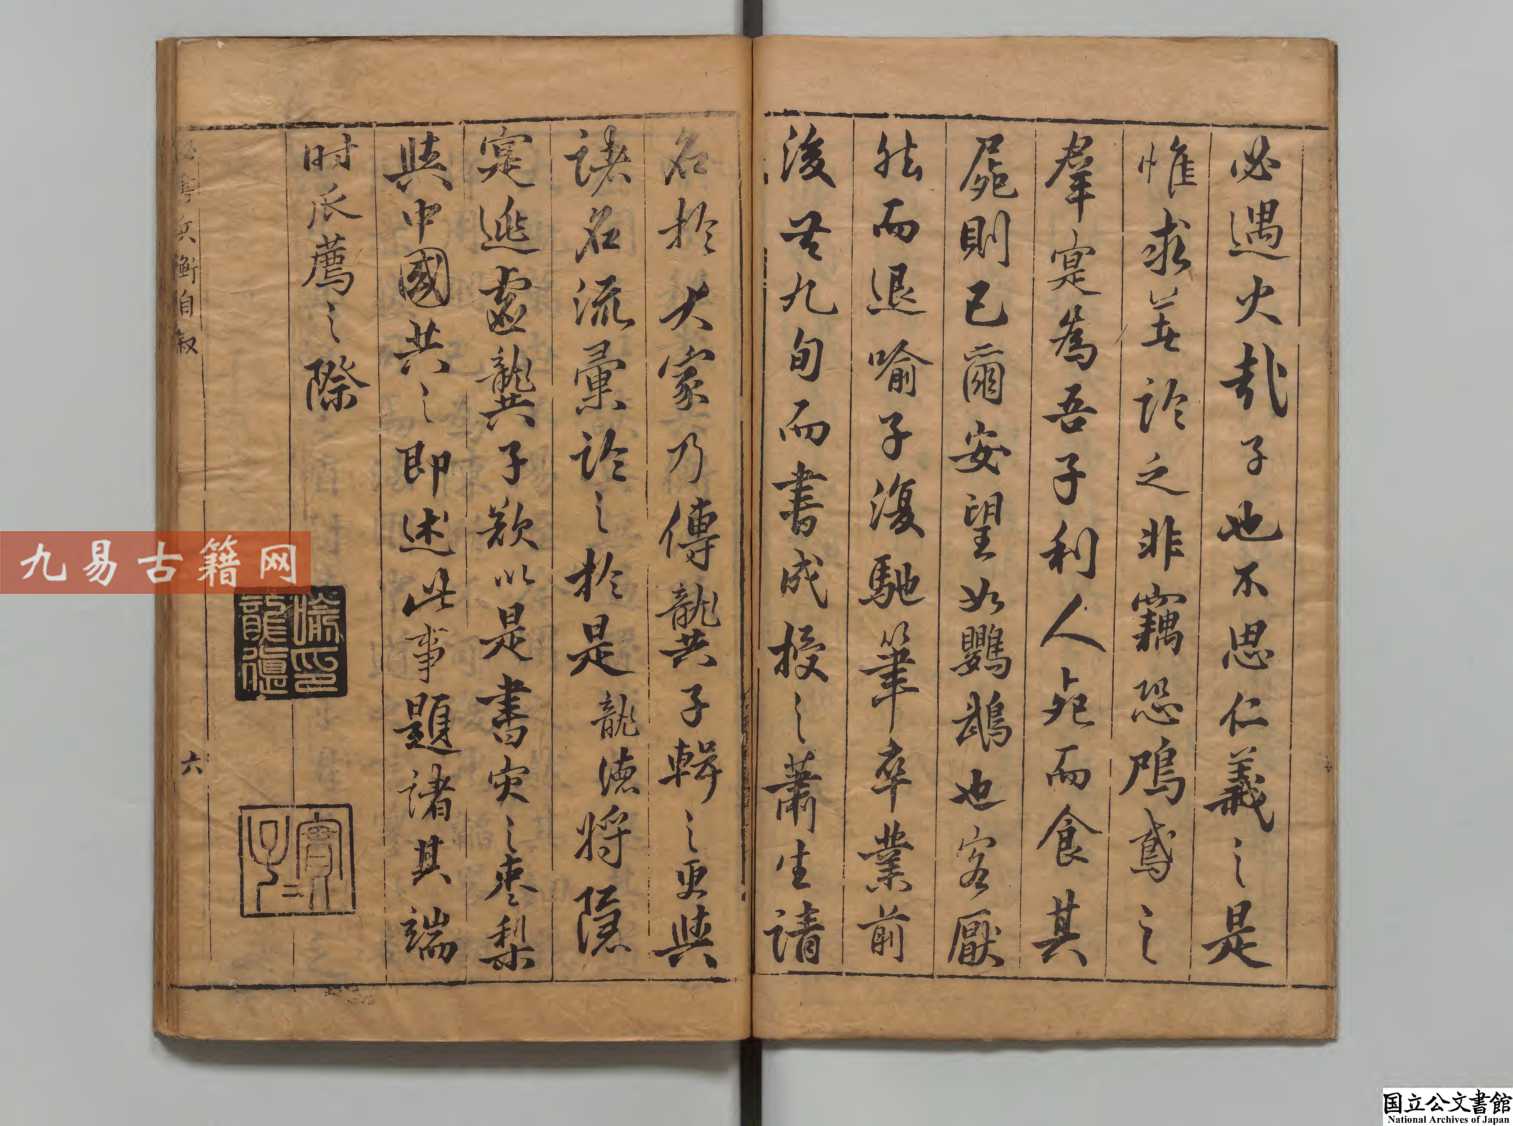 必遇火哉子也不思仁義之是
惟求無論之非竊恐鴟鳶之
羣寔為吾子利人占而食其
屍則已爾安望如鸚鵡也客厭
然而退喻子復馳筆卒業前
後共九旬而書成授之蕭生請
名於大家乃傳龔子輯之更與
諸名流彙論之於是龍德將隱
寔遊處龔子欵以是書灾之枣梨
與中國共之即述此事題諸其端
时爪薦之際
喻印龍德
六
九易古籍网
国立公文書館
National Archives of Japan